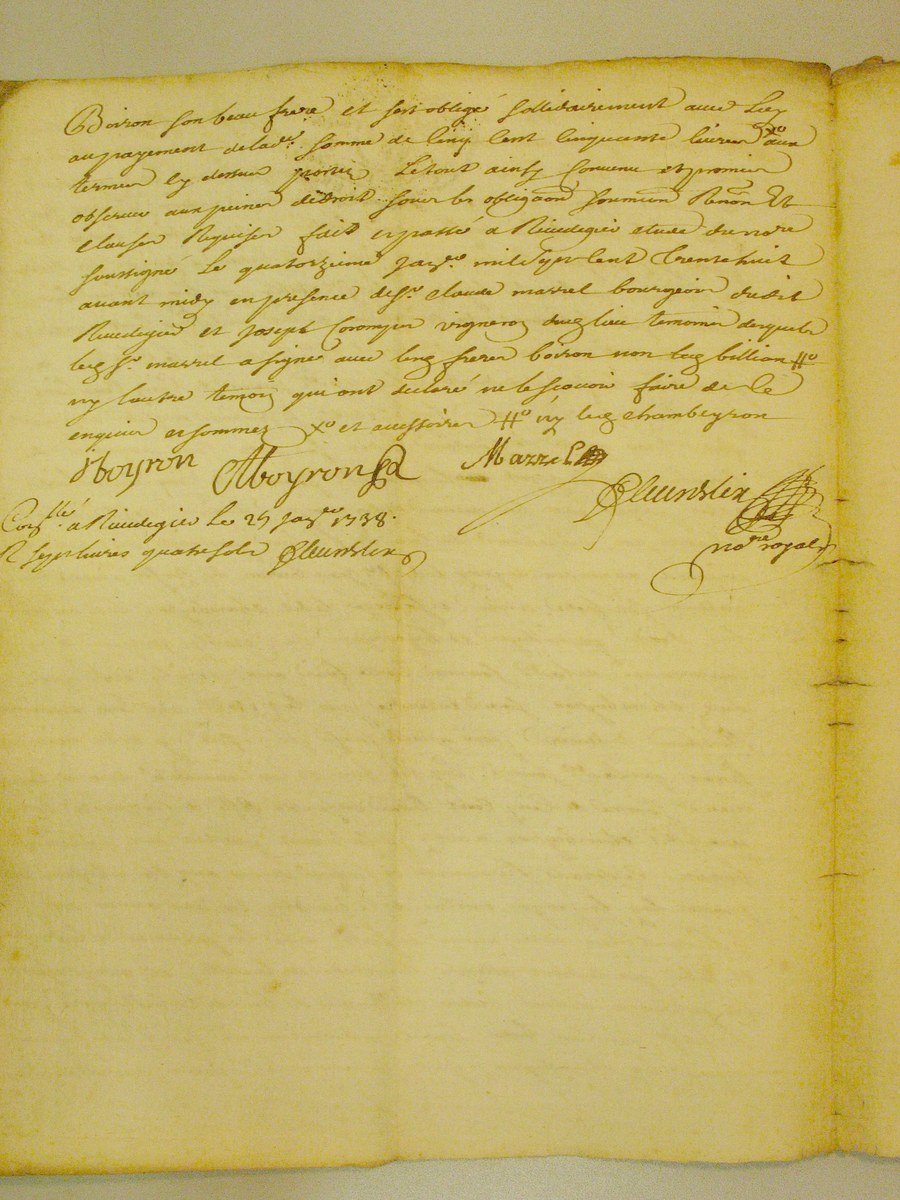 Boiron son beau frere et sest obligé sollidairement avec Luy
au payement de lad.e somme de Cinq Cent Cinquante livres Xo aux
termes Cy dessus portés Le tout ainsy Convenu et promis
observer aux peines de droit sous les obligaons soumions Renons Et
Clauses Requises fait et passé à Rivedegier etude du nore
soussigné Le quatorzieme janer mil sept Cent Trente huit
avant midy en presence de Sr. Claude marrel bourgeois dudit
Rivedegier et Joseph vigneron dud. lieu temoins desquels
led. Sr. marrel a signé avec les freres boiron non led. billion #o
ny lautre temoin qui ont declaré ne le scavoir faire de Ce
enquis et sommez Xo et accessoires #o ny led. Chambeyron
Boyron Boyron Marrel
no.re royal
Con.llé à Rivedegier Le 25 Jan.er 1738.
R sept livres quatre sols